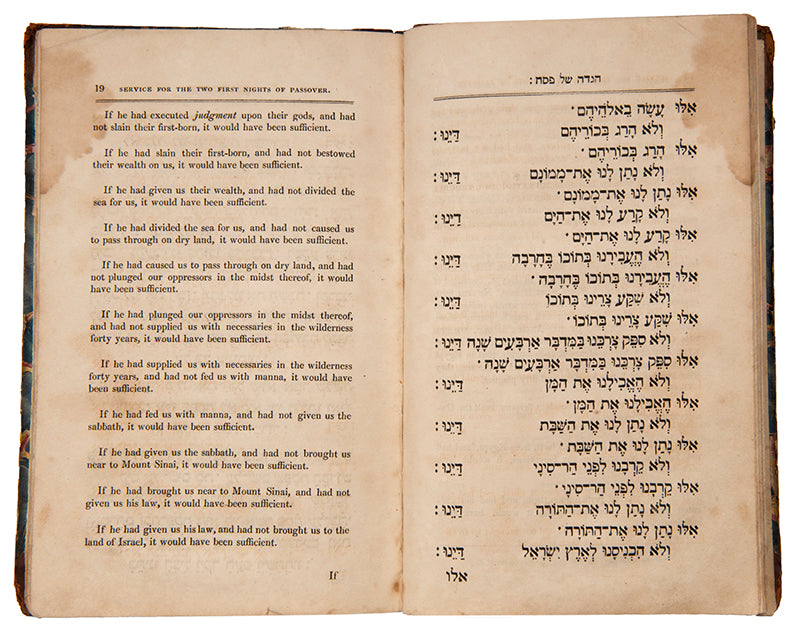 19 SERVICE FOR THE TWO FIRST NIGHTS OF PASSOVER.
If he had executed judgment upon their gods, and had
not slain their first-born, it would have been sufficient.
If he had slain their first-born, and had not bestowed
their wealth on us, it would have been sufficient.
If he had given us their wealth, and had not divided the
sea for us, it would have been sufficient.
If he had divided the sea for us, and had not caused us
to pass through on dry land, it would have been sufficient.
If he had caused us to pass through on dry land, and had
not plunged our oppressors in the midst thereof, it would
have been sufficient.
If he had plunged our oppressors in the midst thereof,
and had not supplied us with necessaries in the wilderness
forty years, it would have been sufficient.
If he had supplied us with necessaries in the wilderness
forty years, and had not fed us with manna, it would have
been sufficient.
If he had fed us with manna, and had not given us the
sabbath, it would have been sufficient.
If he had given us the sabbath, and had not brought us
near to Mount Sinai, it would have been sufficient.
If he had brought us near to Mount Sinai, and had not
given us his law, it would have been sufficient.
If he had given us his law, and had not brought us to the
land of Israel, it would have been sufficient.
If
הגדה של פסח :
אִלּוּ עָשָׂה בֵאלֹהֵיהֶם ·
וְלֹא הָרַג בְּכוֹרֵיהֶם דַּיֵּנוּ :
אִלּוּ הָרַג בְּכוֹרֵיהֶם ·
וְלֹא נָתַן לָנוּ אֶת־מָמוֹנָם דַּיֵּנוּ :
אִלּוּ נָתַן לָנוּ אֶת־מָמוֹנָם ·
וְלֹא קָרַע לָנוּ אֶת־הַיָּם דַּיֵּנוּ :
אִלּוּ קָרַע לָנוּ אֶת־הַיָּם ·
וְלֹא הֶעֱבִירָנוּ בְּתוֹכוֹ בֶּחָרָבָה דַּיֵּנוּ :
אִלּוּ הֶעֱבִירָנוּ בְּתוֹכוֹ בֶּחָרָבָה ·
וְלֹא שִׁקַּע צָרֵינוּ בְּתוֹכוֹ דַּיֵּנוּ :
אִלּוּ שִׁקַּע צָרֵינוּ בְּתוֹכוֹ ·
וְלֹא סִפֵּק צָרְכֵּנוּ בַּמִּדְבָּר אַרְבָּעִים שָׁנָה דַּיֵּנוּ :
אִלּוּ סִפֵּק צָרְכֵּנוּ בַּמִּדְבָּר אַרְבָּעִים שָׁנָה ·
וְלֹא הֶאֱכִילָנוּ אֶת הַמָּן דַּיֵּנוּ :
אִלּוּ הֶאֱכִילָנוּ אֶת הַמָּן ·
וְלֹא נָתַן לָנוּ אֶת הַשַּׁבָּת דַּיֵּנוּ :
אִלּוּ נָתַן לָנוּ אֶת הַשַּׁבָּת ·
וְלֹא קֵרְבָנוּ לִפְנֵי הַר־סִינַי דַּיֵּנוּ :
אִלּוּ קֵרְבָנוּ לִפְנֵי הַר־סִינַי ·
וְלֹא נָתַן לָנוּ אֶת־הַתּוֹרָה דַּיֵּנוּ :
אִלּוּ נָתַן לָנוּ אֶת־הַתּוֹרָה ·
וְלֹא הִכְנִיסָנוּ לְאֶרֶץ יִשְׂרָאֵל דַּיֵּנוּ :
אלו